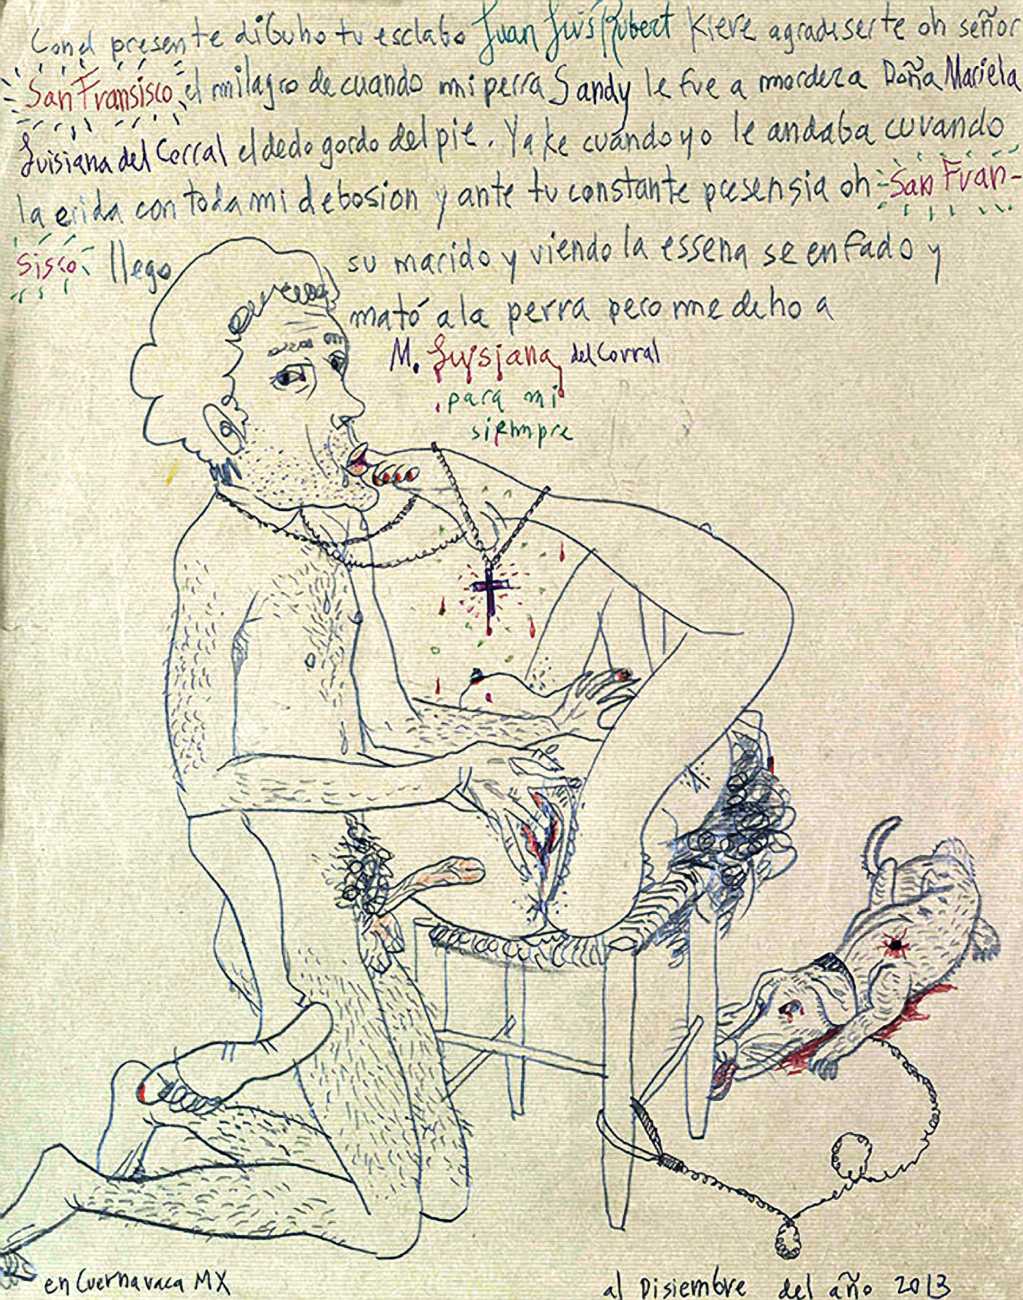 Con el presente dibuho tu esclabo Juan Luis Rubert kiere agradeserte oh señor
San Fransisco el milagro de cuando mi perra Sandy le fue a mordera Doña Mariela
Luisiana del Corral el dedo gordo del pie. Ya ke cuando yo le andaba curando
la erida con toda mi debosion y ante tu constante presensia oh San Fran-
sisco llego su marido y viendo la essena se enfado y
mató a la perra pero me deho a
M. Luisiana del Corral
para mi
siempre
en Cuernavaca MX al Disiembre del año 2013